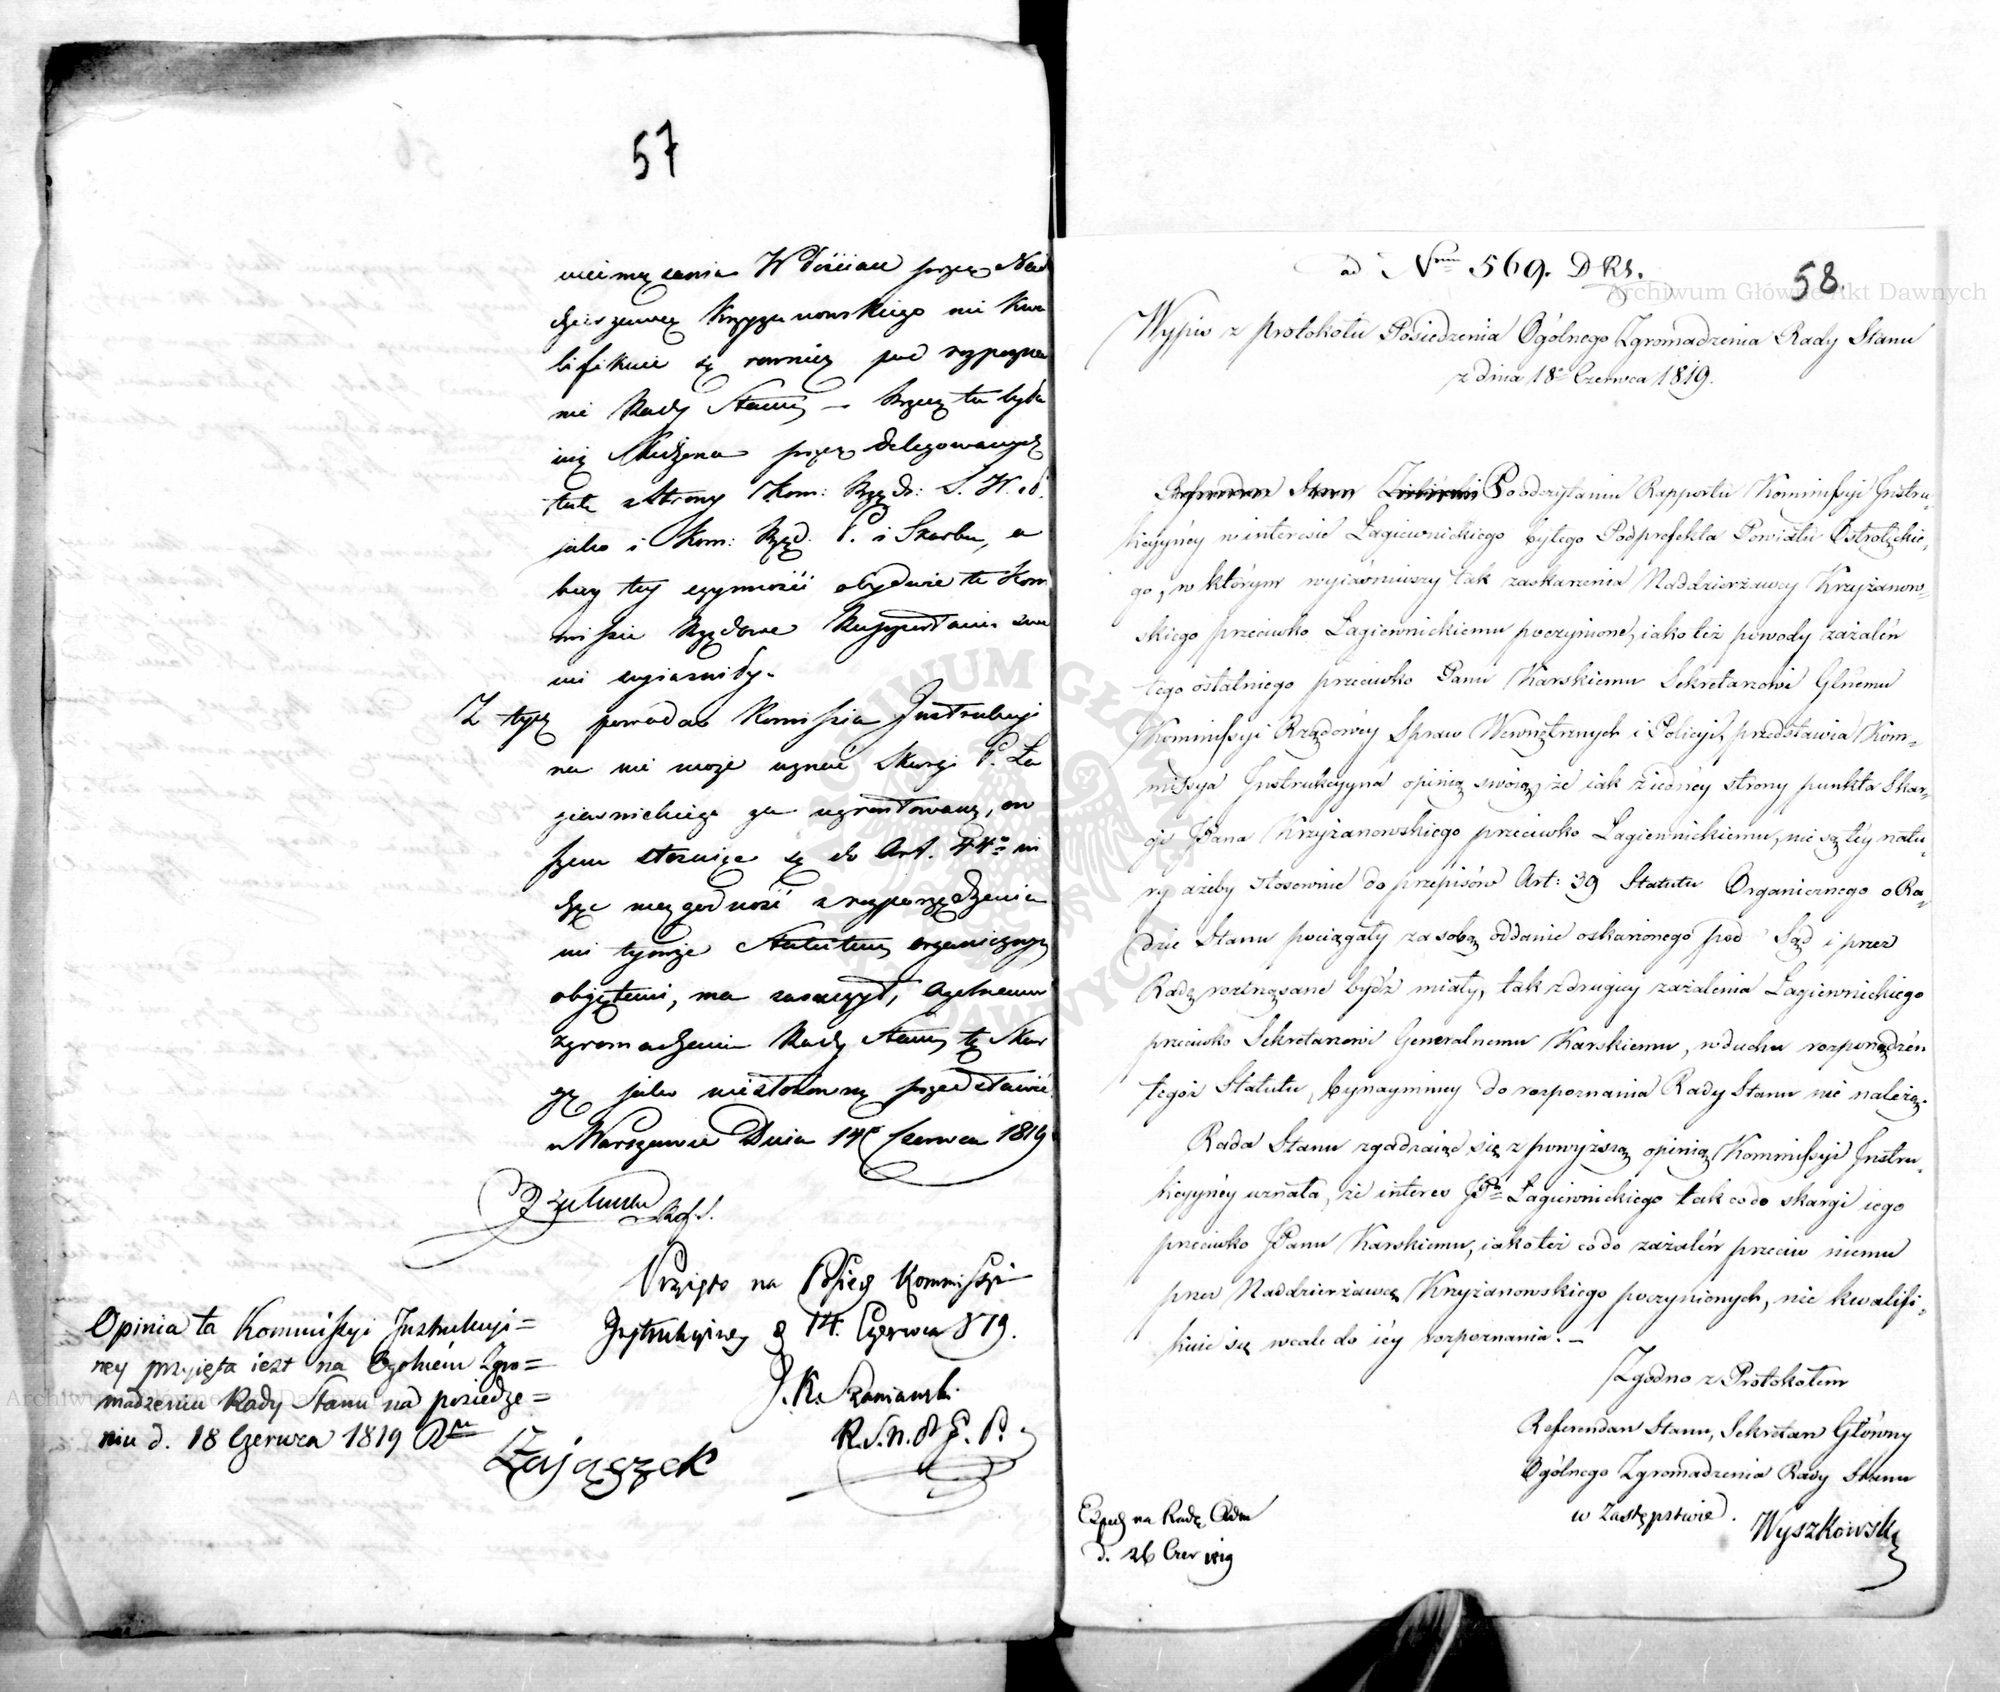 57
niemężenia Włościan przez Nad
dzierżawcę Krzyżanowskiego nie kwa
lifikuie się rownież pod rozpozna
nie Rady Stanu — Rzecz ta była
iuż śledzona przez delegowanych
tak z strony Kom: Rząd: S. W. i P.
jako i Kom: Rząd: P. i Skarbu, a
bieg tey czynności obydwie te Kom
missie Rządowe Rapportami swe
mi wyiasniły.
Z tych powodow Komissia Instrukcyi
na nie może uznać Skargi P. Ła
giewnickiego za ugruntowaną, ow
szem stosuiąc się do Art. 44º wi
dząc niezgodność z rozporządzenia
mi tymże Statutem organicznym
objętemi, ma zaszczyt, Ogolnemu
zgromadzeniu Rady Stanu tę Skar
gę jako niestosowną przedstawić.
w Warszawie Dnia 14º Czerwca 1819
Ref. S.
Przyięto na Posiedz Kommissyi
Instrukcyiney d 14. Czerwca 1819.
J. K. Szaniawski
R. S. N. P. G. P.
Opinia ta Kommissyi Instrukcyi=
ney przyięta iest na Ogolném Zgro=
madzeniu Rady Stanu na posiedze=
niu d. 18 Czerwca 1819 Rku
Zajączek
ad Nrum 569. D RS.
58.
Wypis z Protokołu Posiedzenia Ogólnego Zgromadzenia Rady Stanu
z dnia 18º Czerwca 1819.
Referendarz Stanu Zieliński Po odczytaniu Rapportu Kommissyi Instru-
kcyjney w interesie Łagiewnickiego byłego Podprefekta Powiatu Ostrołęckie,
go, w którym wyiaśniwszy tak zaskarżenia Naddzierżawcy Krzyżanow-
skiego przeciwko Łagiewnickiemu poczynione, iako też powody zażaleń
tego ostatniego przeciwko Panu Karskiemu Sekretarzowi Glnemu
Kommissyi Rządowéy Spraw Wewnętrznych i Policyi, przedstawia Kom-
missya Instrukcyyna opinią swoią, że iak z iednéy strony punkta Skar-
gi JPana Krzyżanowskiego przeciwko Łagiewnickiemu, nie są téy natu-
ry ażeby stosownie do przepisów Art: 39 Statutu Organicznego o Ra-
dzie Stanu pociągały za sobą oddanie oskarżonego pod Sąd i przez
Radę roztrząsane bydź miały, tak z drugiey zażalenia Łagiewnickiego
przeciwko Sekretarzowi Generalnemu Karskiemu, w duchu rozporządzeń
tegoż Statutu, bynaymniey do rozpoznania Rady Stanu nie należą.
Rada Stanu zgadzaiąc się z powyższą opinią Kommissyi Instru-
kcyjnéy uznała, że interes JPa Łagiewnickiego tak co do skargi iego
przeciwko JPanu Karskiemu, iako też co do zażaleń przeciw niemu
przez Naddzierżawcę Krzyżanowskiego poczynionych, nie kwalifi-
kuie się wcale do iéy rozpoznania. —
Zgodno z Protokołem
Referendarz Stanu, Sekretarz Główny
Ogólnego Zgromadzenia Rady Stanu
w Zastępstwie. Wyszkowski
Exped na Radę Adm
d. 26 Czer 1819
Archiwum Główne Akt Dawnych